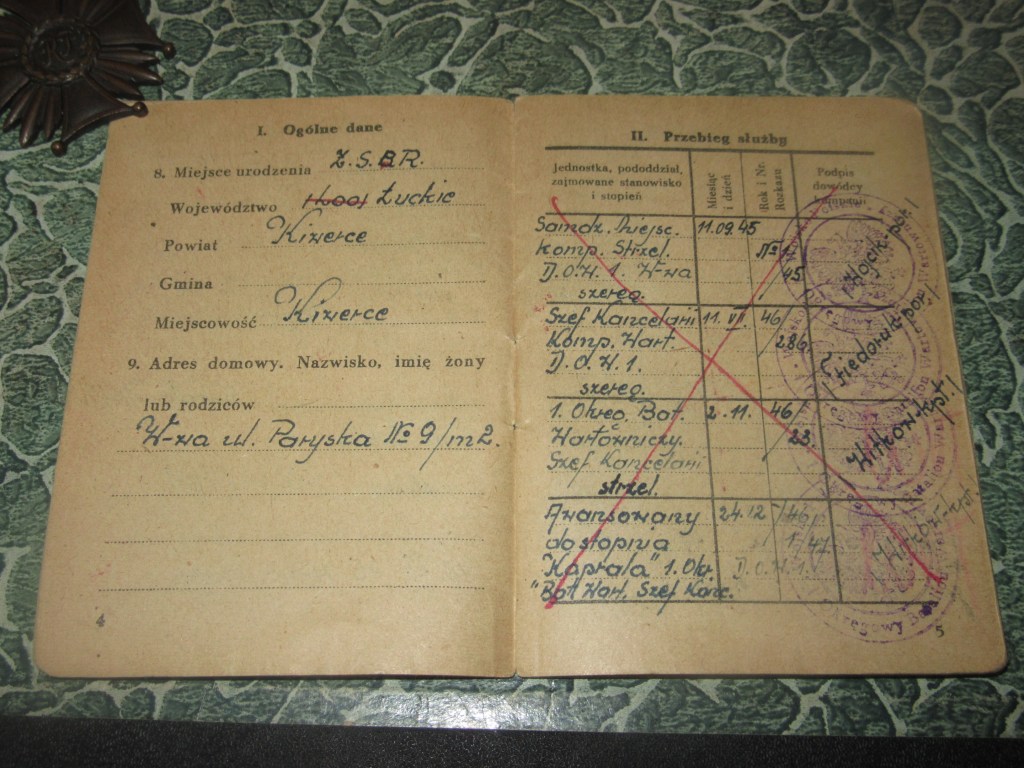 I. Ogólne dane
8. Miejsce urodzenia Z.S.R.R.
Województwo Łuckie
Powiat Kiwerce
Gmina
Miejscowość Kiwerce
9. Adres domowy. Nazwisko, imię żony
lub rodziców
W-wa ul. Paryska № 9/m2.
4
II. Przebieg służby
Jednostka, pododdział, zajmowane stanowisko i stopień
Miesiąc i dzień
Rok i Nr. Rozkazu
Podpis dowódcy kompanii
Samdz. Miejsc. 11.09.45
komp. Strzel. № 1
D.O.W. 1. W-wa 45
szereg.
Szef Kancelarii 11. VII. 46/
Komp. Wart. 286.
D.O.W. 1.
szereg.
1. Okręg. Bat. 2.11. 46/
Wartowniczy. 23.
Szef Kancelarii
strzel.
Awansowany 24.12 /46
do stopnia 1/47.
"Kaprala" 1. Okr. D.O.W.1.
"Bat" Wart. Szef Kanc.
5